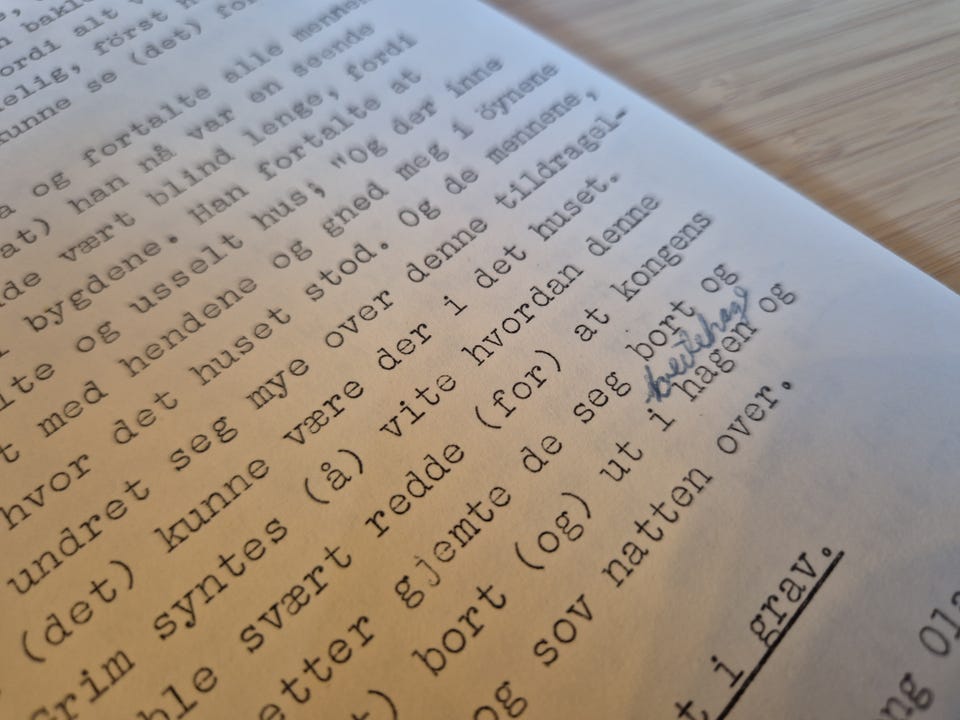 bakle
ordi alt v
elig, först h
kunne se (det) for
a og fortalte alle mennes
at) han nå var en seende
de vært blind lenge, fordi
bygdene. Han fortalte at
lte og usselt hus; "Og der inne
t med hendene og gned meg i öynene
hvor det huset stod. Og de mennene,
undret seg mye over denne tildragel-
(det) kunne være der i det huset.
Grim syntes (å) vite hvordan denne
ble svært redde (for) at kongens
etter gjemte de seg bort og
beitehage
) bort (og) ut i hagen og
og sov natten over.
t i grav.
ng Ola